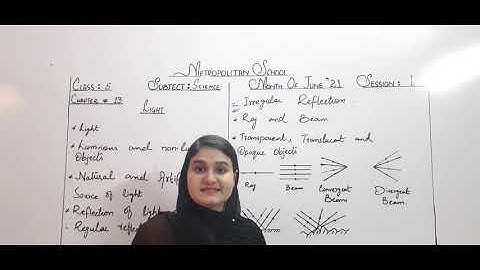 METROPOLITAN SCHOOL
CLASS: 6 SUBJECT: SCIENCE MONTH OF JUNE'21 SESSION: 1
CHAPTER # 13
LIGHT
* Light
* Luminous and non-
Objects
* Natural and
Source of light
* Reflection of light
Regular
Irregular Reflection
* Ray and Beam
* Transparent, Translucent and
Opaque Objects
Ray Beam Convergent Beam Divergent Beam